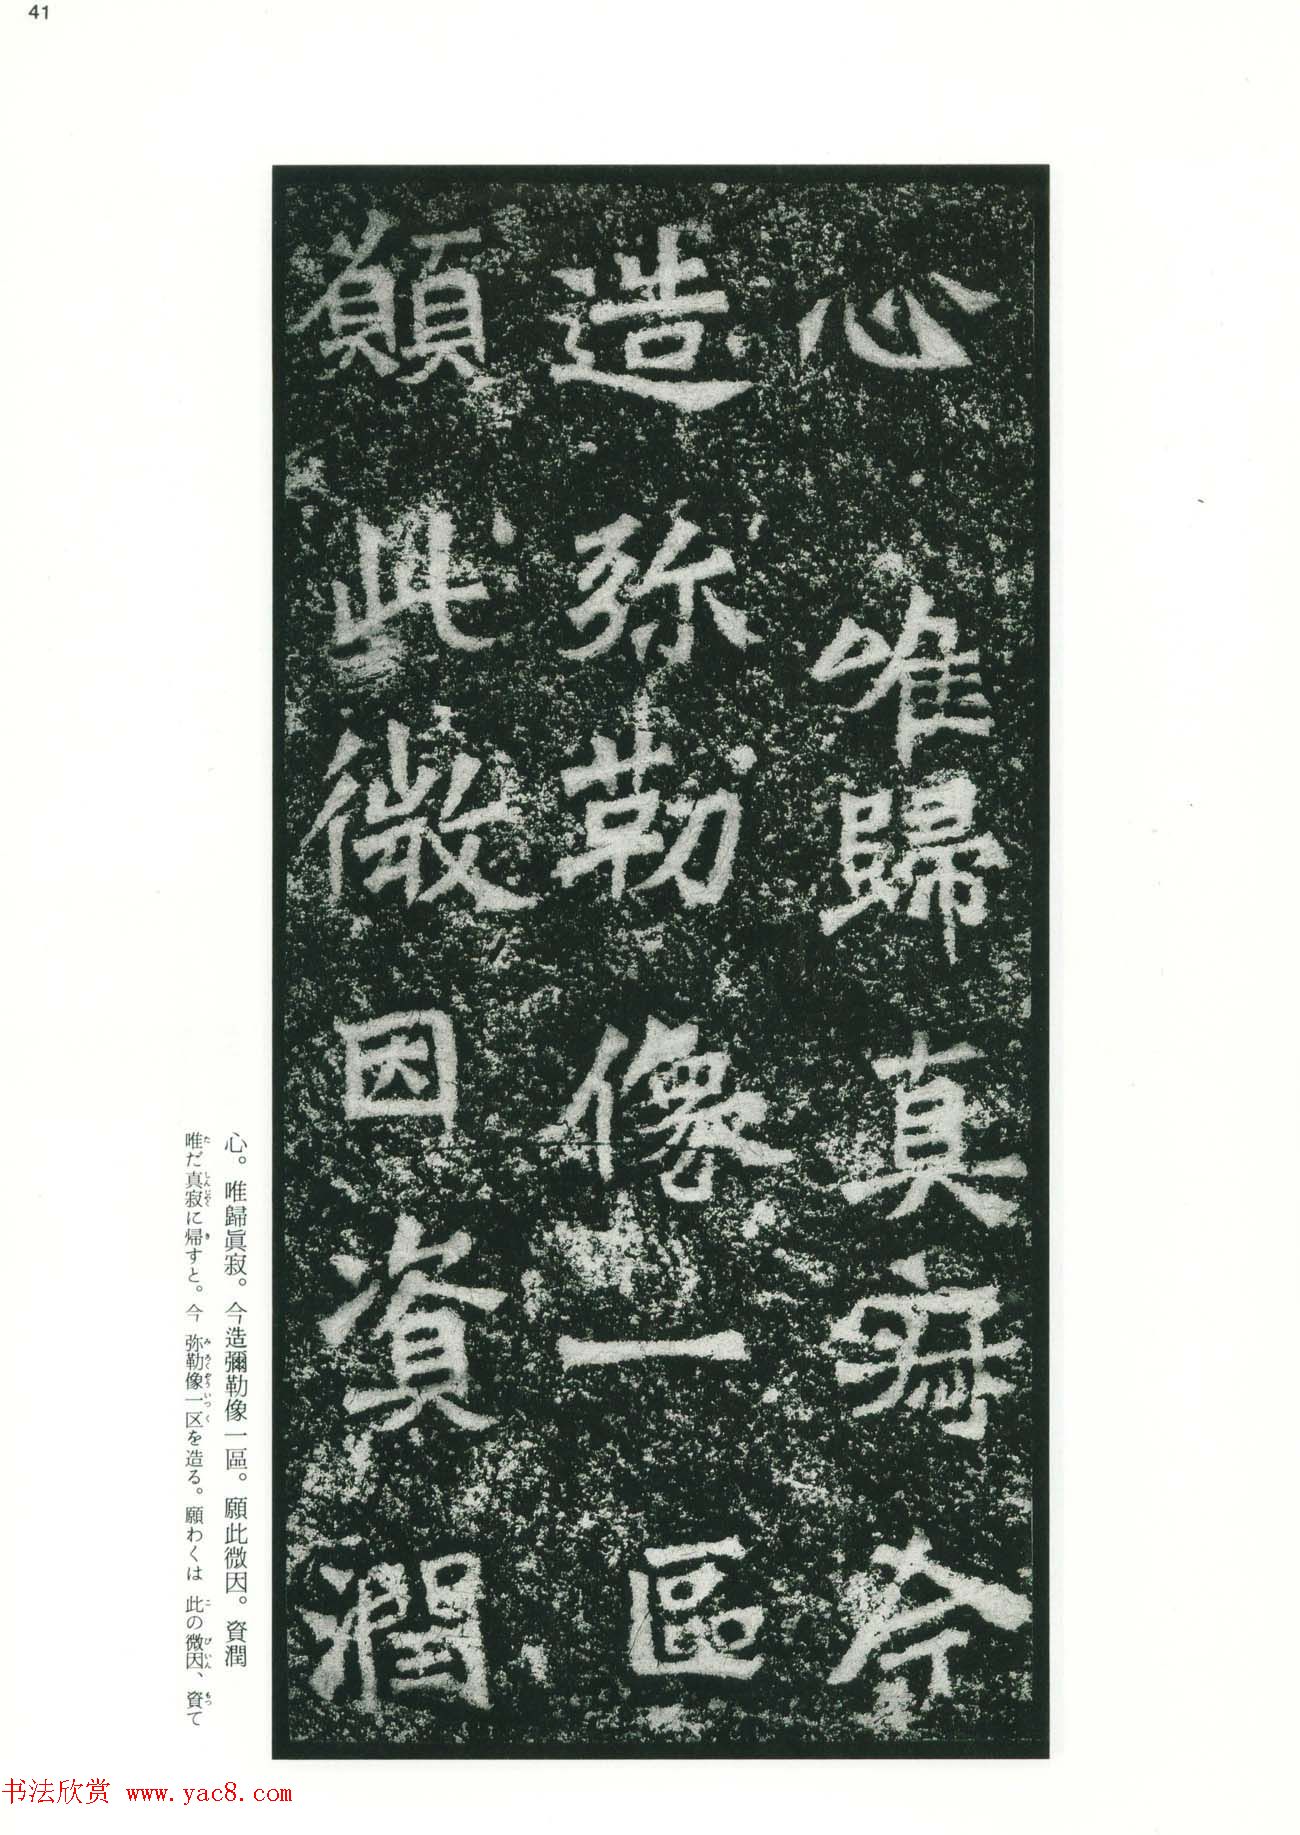 41
心唯歸真寂今
造弥勒像一區
願此微因資潤
心。唯歸眞寂。今造彌勒像一區。願此微因。資潤
唯だ真寂に帰すと。今 弥勒像一区を造る。願わくは 此の微因、資て
书法欣赏 www.yac8.com